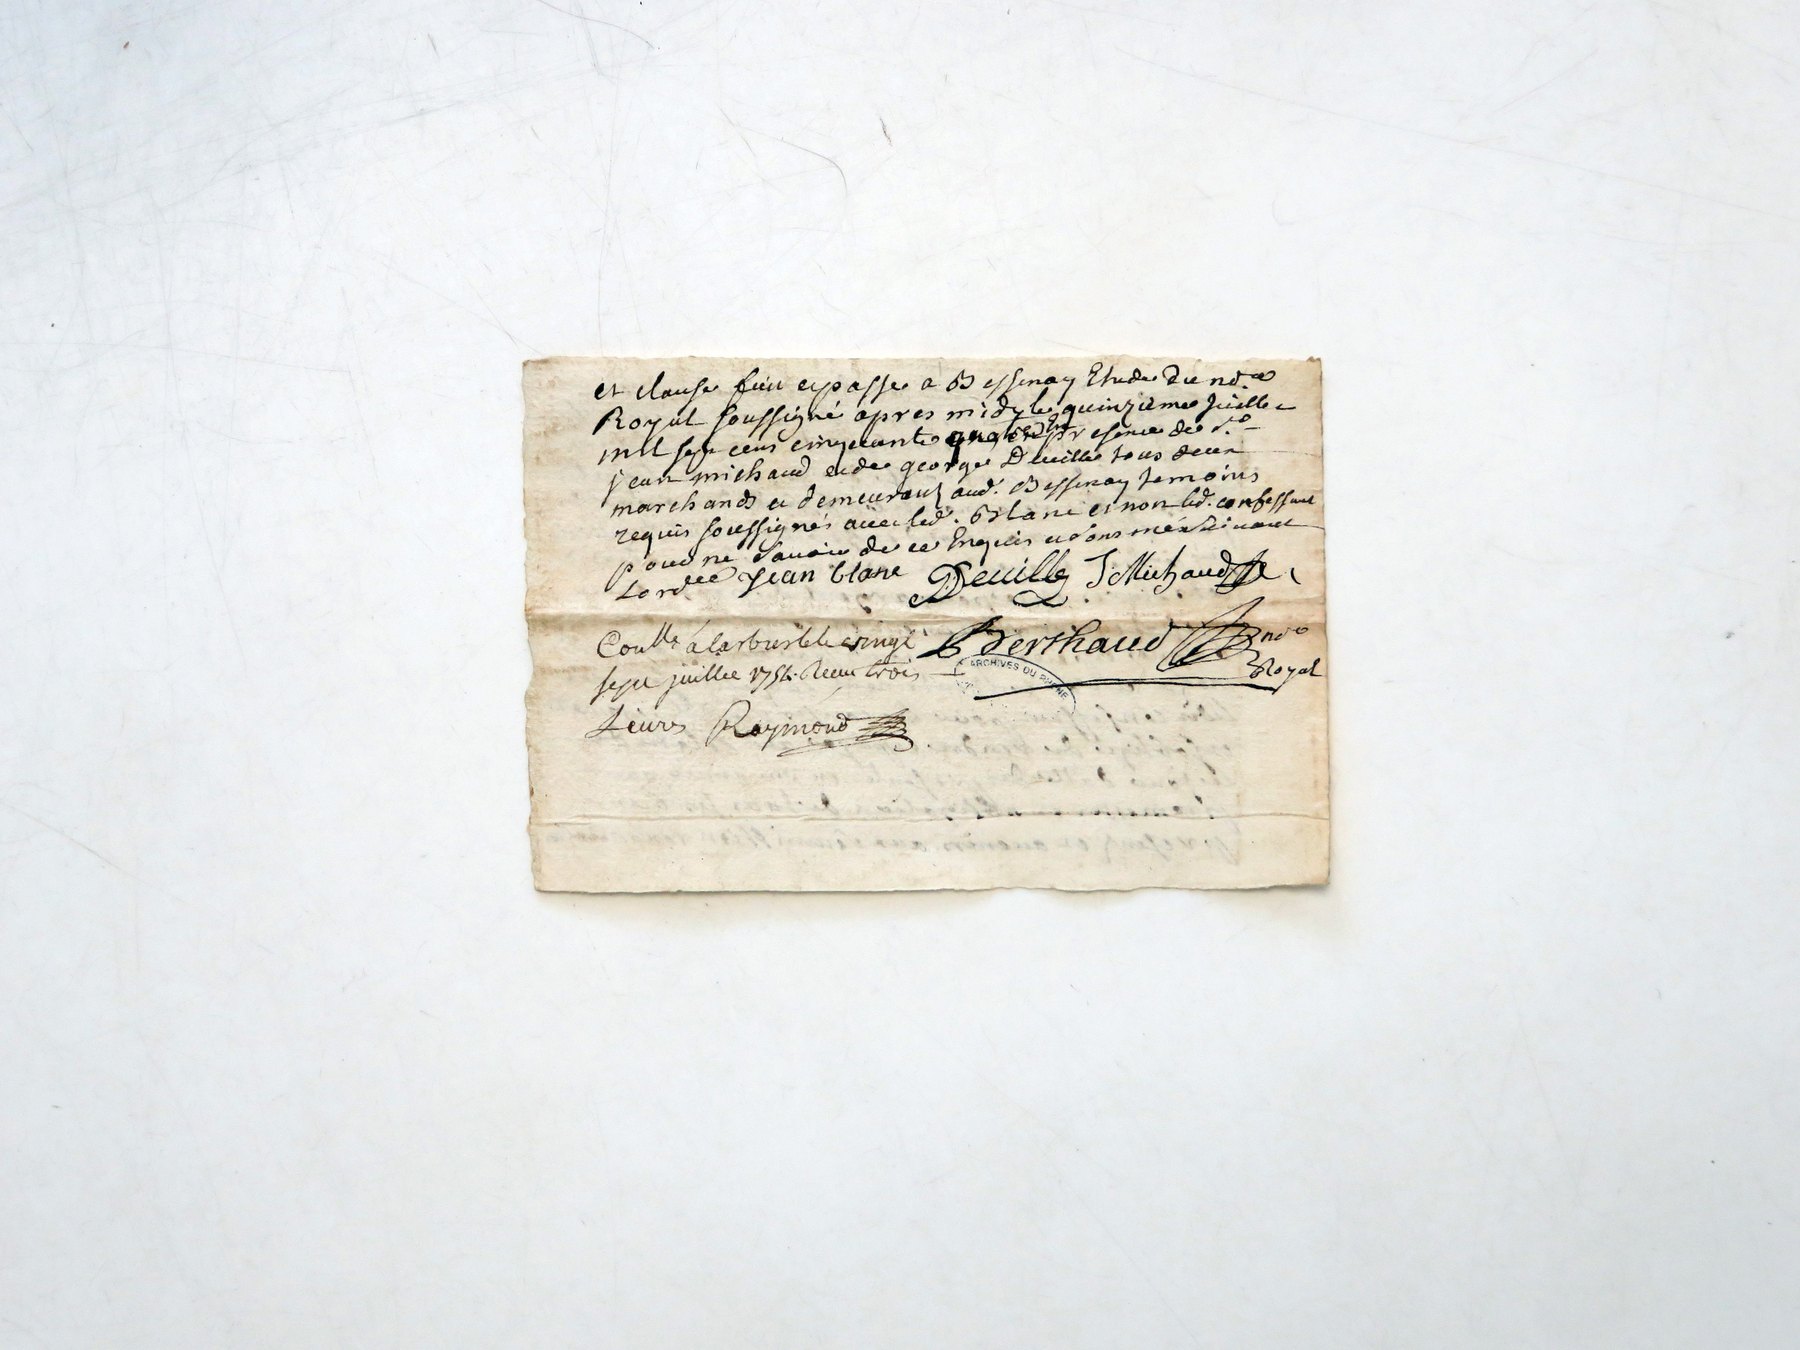 et clause fait et passé a Bessenay Etude du no.re
Royal soussigné apres midy le quinzieme Juillet
mil sept cens cinquante quatre presence de s.r
jean michaud et de george Deville tous deux
marchands et demeurant aud. Bessenay temoins
requis soussignés avec led. Blanc et non led. confessant
pour ne savoir de ce Enquis et
jean blanc Deville J Michaud
Con.lle à larbresle le vingt Berthaud no.re
sept juillet 1754. Receu trois Royal
ARCHIVES DU RHONE
Livres Raymond